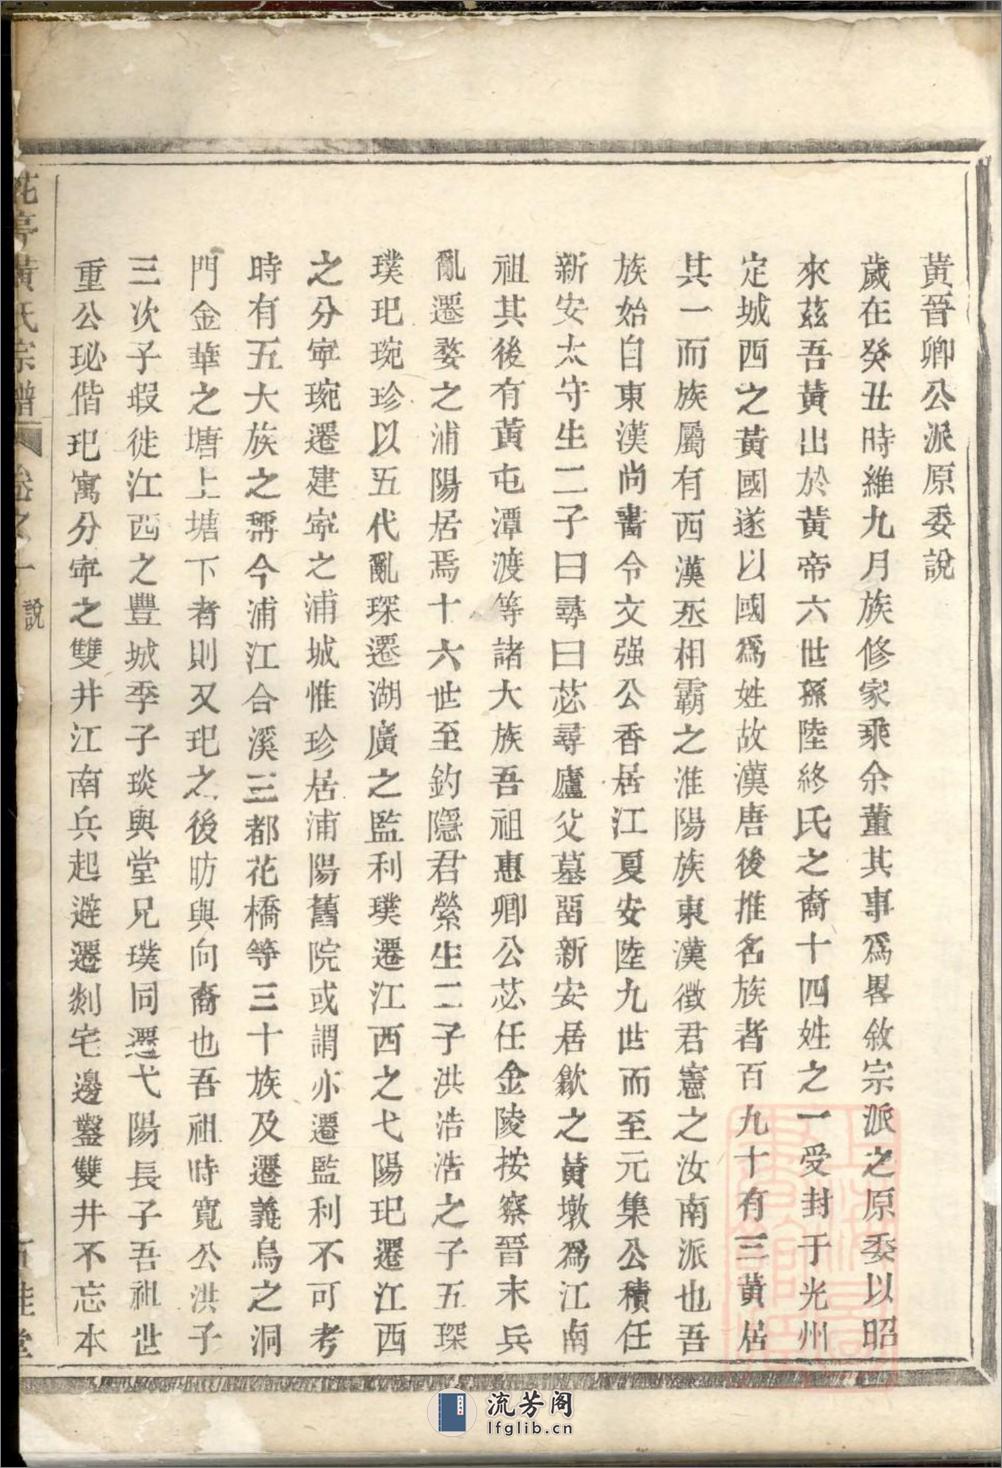 黃晉卿公派原委說
歲在癸丑時維九月族修家乘余董其事爲畧敘宗派之原委以昭
來茲吾黃出於黃帝六世孫陸終氏之裔十四姓之一受封于光州
定城西之黃國遂以國爲姓故漢唐後推名族者百九十有三黃居
其一而族屬有西漢丞相霸之淮陽族東漢徵君憲之汝南派也吾
族始自東漢尚書令文强公香居江夏安陸九世而至元集公積任
新安太守生二子曰尋曰苾尋廬父墓畱新安居歙之黃墩爲江南
祖其後有黃屯潭渡等諸大族吾祖惠卿公苾任金陵按察晉末兵
亂遷婺之浦陽居焉十六世至釣隱君縈生二子洪浩浩之子五琛
璞玘琬珍以五代亂琛遷湖廣之監利璞遷江西之弋陽玘遷江西
之分寧琬遷建寧之浦城惟珍居浦陽舊院或謂亦遷監利不可考
時有五大族之稱今浦江合溪三都花橋等三十族及遷義烏之洞
門金華之塘上塘下者則又玘之後昉與向裔也吾祖時寬公洪子
三次子瑕徙江西之豐城季子琰與堂兄璞同遷弋陽長子吾祖世
重公珌偕玘寓分寧之雙井江南兵起避遷剡宅邊鑿雙井不忘本
花亭黃氏宗譜 卷之一 說
流芳阁
lfglib.cn